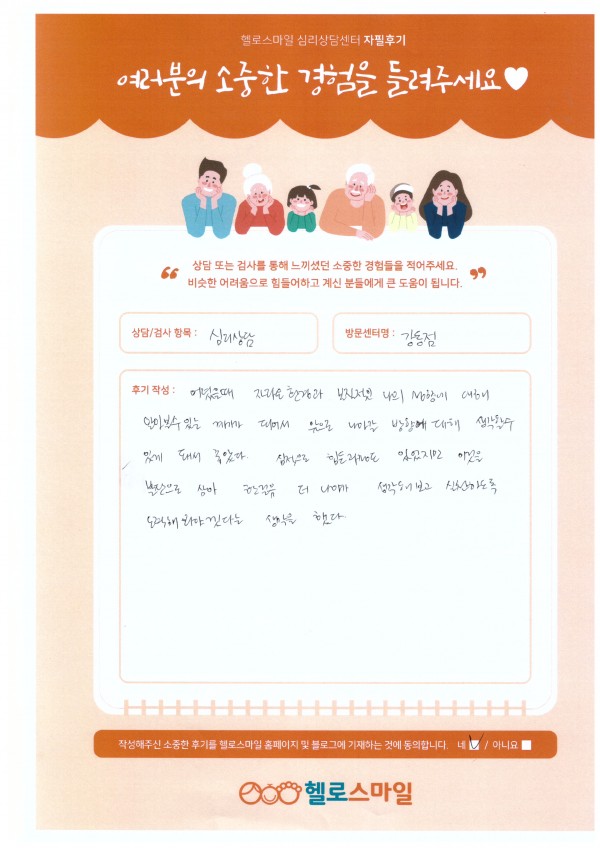 헬로스마일 심리상담센터 자필후기
여러분의 소중한 경험을 들려주세요
상담 또는 검사를 통해 느끼셨던 소중한 경험들을 적어주세요.
비슷한 어려움으로 힘들어하고 계신 분들에게 큰 도움이 됩니다.
상담/검사 항목 : 심리상담
방문센터명 : 강동점
후기 작성 : 어렸을때 자라온 환경과 본질적인 나의 성향에 대해
알아볼수 있는 계기가 되어서 앞으로 나아갈 방향에 대해 생각할수
있게 돼서 좋았다. 심적으로 힘든과정도 있었지만 이것을
발판으로 삼아 한걸음 더 나아가 생각해보고 실천하도록
노력해 봐야겠다는 생각을 했다.
작성해주신 소중한 후기를 헬로스마일 홈페이지 및 블로그에 기재하는 것에 동의합니다. 네 / 아니요
헬로스마일